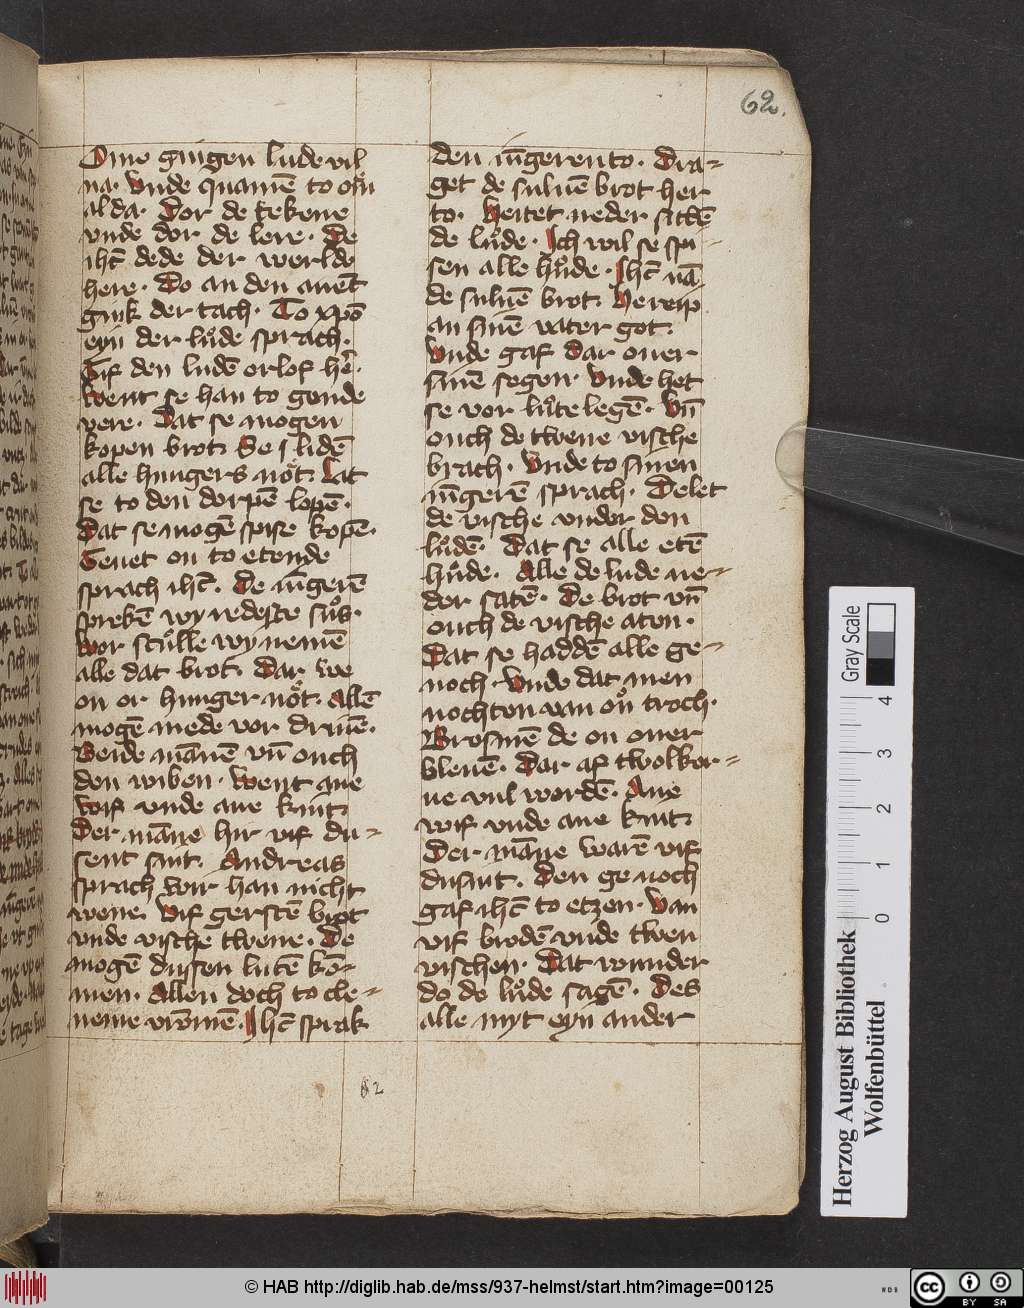 62.
Ome gingen lude vil
na. Vnde quamē to om̄
al da. Dor de tekene
vnde dor de lere. De
ihc̄ dede der werlde
here. Do an den auēt
gink der tach. To xpō
eyn der lude sprach.
Gif den ludē orlof hē.
Went se han to gonde
vere. Dat se mogen
kopen brot. Se lidē
alle hungers not. Lat
se to den dorpē lopē.
Dat se mogē spise kopē.
Geuet on to etende
sprach ihc̄. De iūgerē
sprekē wy redeste sus.
Wor scolle wy nemē
alle dat brot. Dar we
on or hunger not. Allē
mogē mede vor driuē.
Beide mānē vn̄ ouch
den wiben. Went ane
wif vnde ane kint.
Der māne hir vif du-
sent sint. Andreas
sprach wir han nicht
wene. Vif gerstē brot
vnde vische twene. De
mogē dusen lutē kō-
men. Allen doch to cle-
neme vromē. Ihc̄ sprak
den iūgeren to. Dra-
get de suluē brot her
to. Heitet neder sittē
de lude. Ich wil se spi-
sen alle hude. Ihc̄ nā
de suluē brot. He reip
an sinē vater got.
Vnde gaf dar ouer
sinē segen. Vnde het
se vor lute legē. Vn̄
ouch de twene vische
brach. Vnde to sinen
iūgerē sprach. Delet
de vische vnder den
ludē. Dat se alle etē
hude. Alle de lude ne-
der satē. De brot vn̄
ouch de vische aten.
Dat se haddē alle ge-
noch. Vnde dat men
nochton van on troch.
Brosmē de on ouer
bleuē. Dar af twolker-
ue vul wordē. Ane
wif vnde ane kint.
Der māne warē vif
dusint. Den ge noch
gaf ihc̄ to etzen. Van
vif brodē vnde twen
vischen. Dat wunder
do de lude sagē. Des
alle myt eyn ander
62
Gray Scale
0 1 2 3 4
Herzog August Bibliothek
Wolfenbüttel
© HAB http://diglib.hab.de/mss/937-helmst/start.htm?image=00125
WDB
cc BY SA